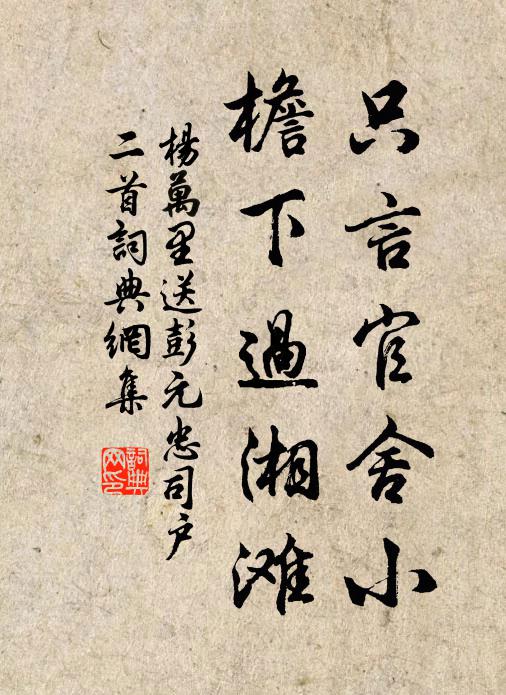 只言官舍小
檐下過湘滩
楊萬里送彭元忠司户
二首詞典網集
詞典網印